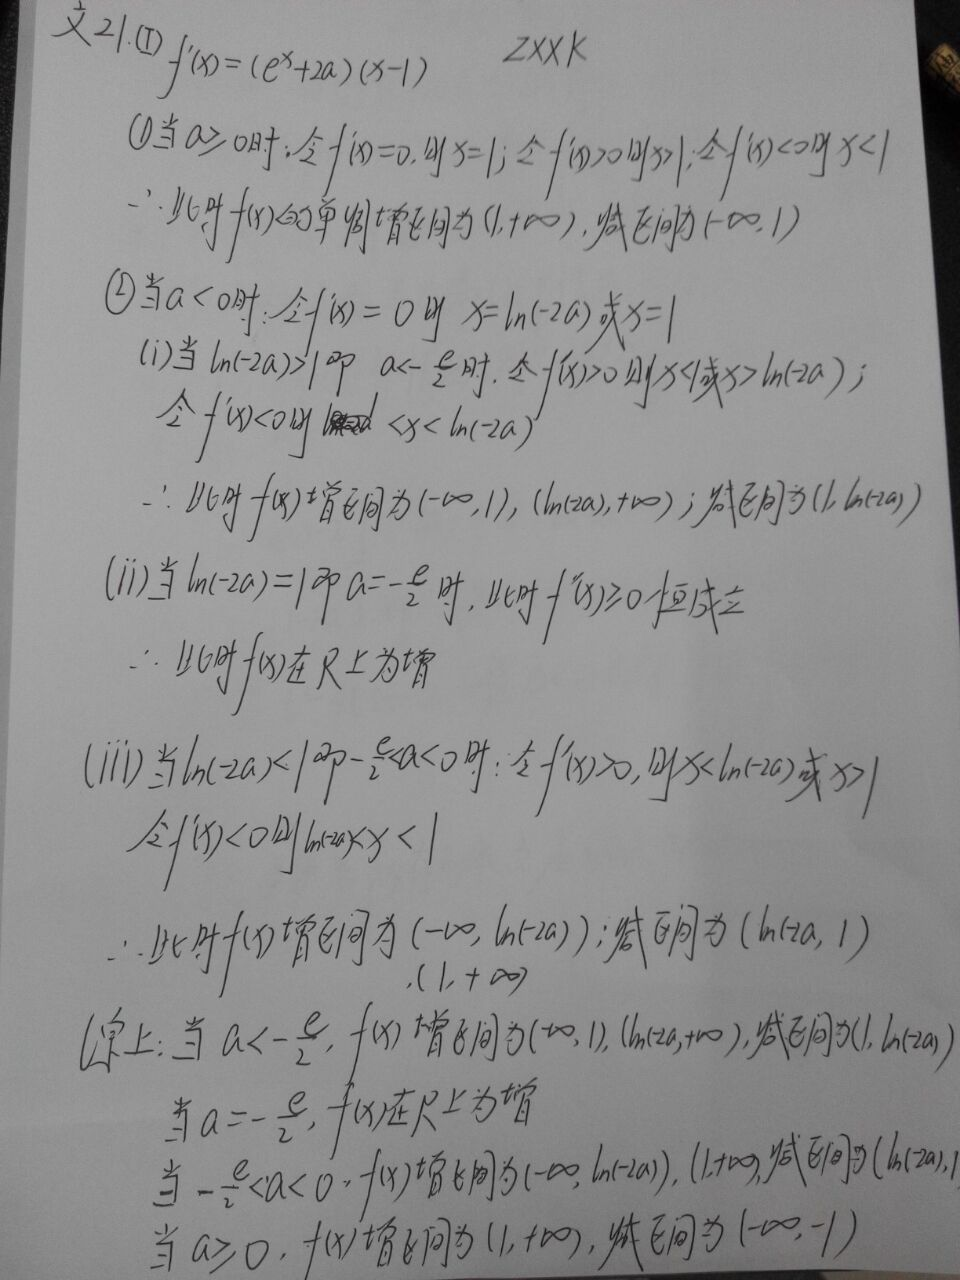 文21.(I) f'(x)=(eˣ+2a)(x-1)
ZXXK
①当a≥0时:令f'(x)=0,则x=1;令f'(x)>0则x>1;令f'(x)<0则x<1
∴此时f(x)的单调增区间为(1,+∞),减区间为(-∞,1)
②当a<0时:令f'(x)=0则 x=ln(-2a)或x=1
(i)当ln(-2a)>1即 a<-e/2时,令f'(x)>0则x<1或x>ln(-2a);
令f'(x)<0则 <x<ln(-2a)
∴此时f(x)增区间为(-∞,1),(ln(-2a),+∞);减区间为(1,ln(-2a))
(ii)当ln(-2a)=1即a=-e/2时,此时f'(x)≥0恒成立
∴此时f(x)在R上为增
(iii)当ln(-2a)<1即-e/2<a<0时:令f'(x)>0,则x<ln(-2a)或x>1
令f'(x)<0则ln(-2a)<x<1
∴此时f(x)增区间为(-∞,ln(-2a));减区间为(ln(-2a,1)
,(1,+∞)
综上:当a<-e/2,f(x)增区间为(-∞,1),(ln(-2a,+∞),减区间为(1,ln(-2a))
当a=-e/2,f(x)在R上为增
当-e/2<a<0,f(x)增区间为(-∞,ln(-2a)),(1,+∞),减区间为(ln(-2a),1
当a≥0,f(x)增区间为(1,+∞),减区间为(-∞,-1)